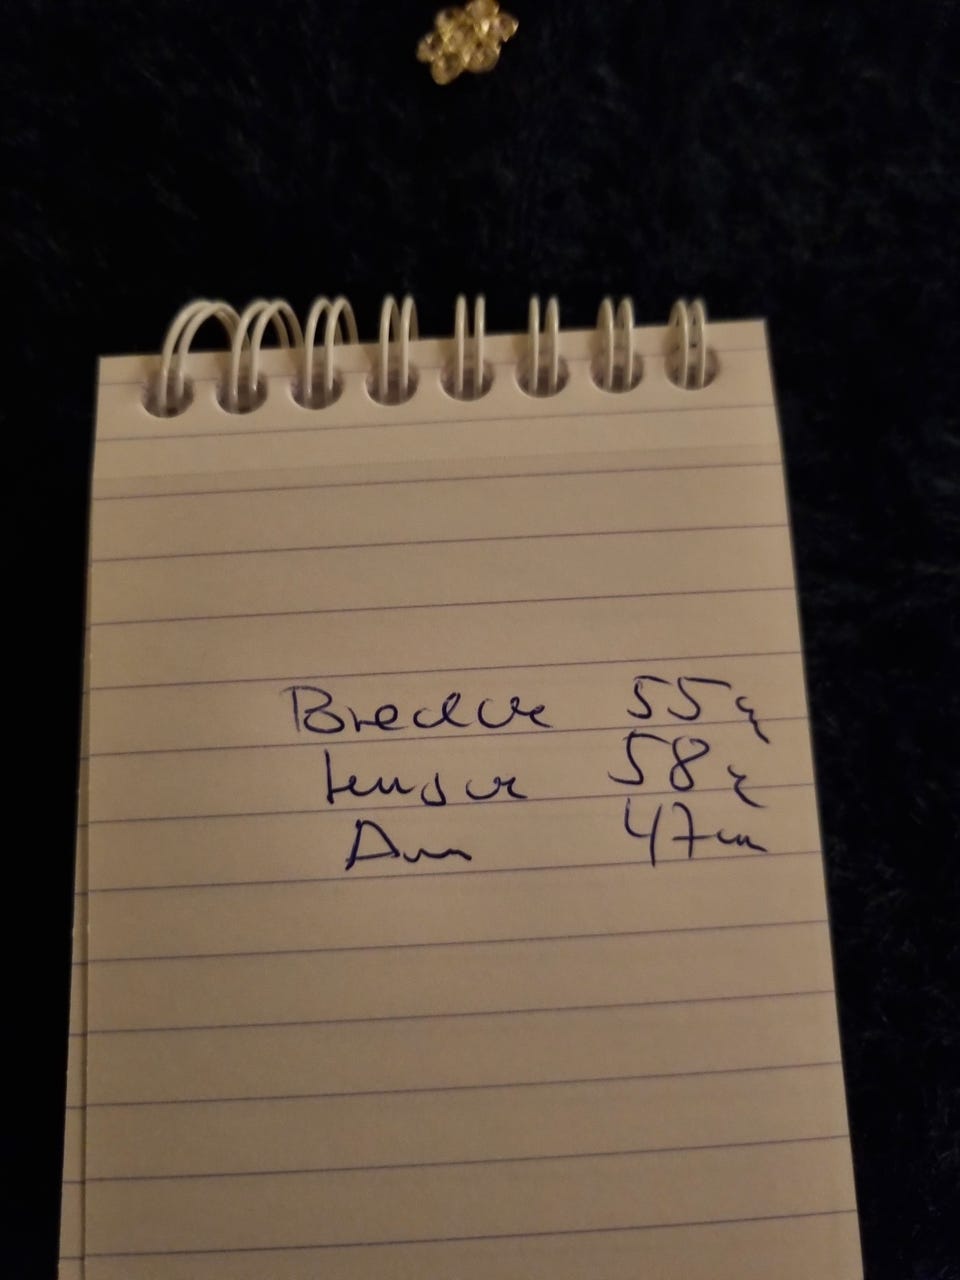 Bredde 55 cm
Lengde 58 cm
Arm 47 cm